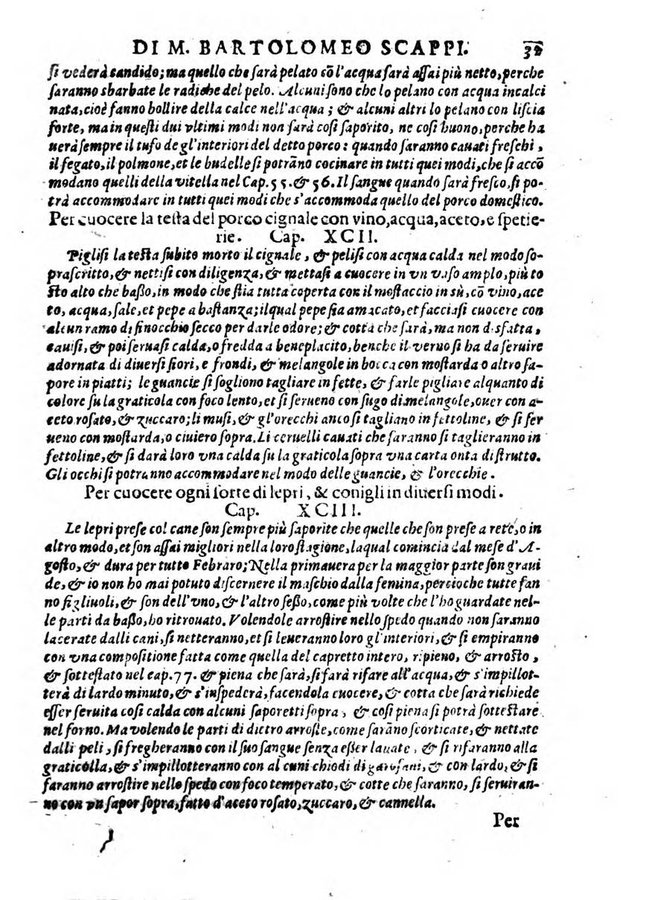 DI M. BARTOLOMEO SCAPPI. 38
ſi vederà candido; ma quello che ſarà pelato cõ l'acqua ſarà aſſai più netto, perche
ſaranno sbarbate le radiche del pelo. Alcuni ſono che lo pelano con acqua incalci
nata, cioè fanno bollire della calce nell'acqua; & alcuni altri lo pelano con liſcia
forte, ma in queſti dui vltimi modi non ſarà coſi ſaporito, ne coſi buono, perche ha
uerà ſempre il tufo de gl'interiori del detto porco: quando ſaranno cauati freſchi,
il fegato, il polmone, et le budelle ſi potrãno cocinare in tutti quei modi, che ſi accõ
modano quelli della vitella nel Cap. 55. & 56. Il ſangue quando ſarà freſco, ſi po-
trà accommodare in tutti quei modi che s'accommoda quello del porco domeſtico.
Per cuocere la teſta del porco cignale con vino, acqua, aceto, e ſpetie-
rie. Cap. XCII.
Pigliſi la teſta ſubito morto il cignale, & peliſi con acqua calda nel modo ſo-
praſcritto, & nettiſi con diligenza, & mettaſi a cuocere in vn vaſo amplo, più to
ſto alto che baſſo, in modo che ſtia tutta coperta con il moſtaccio in sù, cõ vino, ace
to, acqua, ſale, et pepe a baſtanza; il qual pepe ſia amacato, et facciaſi cuocere con
alcun ramo di finocchio ſecco per darle odore; & cotta che ſarà, ma non disfatta,
cauiſi, & poi ſeruaſi calda, o fredda a beneplacito, benche il verno ſi ha da ſeruire
adornata di diuerſi fiori, e frondi, & melangole in bocca con moſtarda o altro ſa-
pore in piatti; le guancie ſi ſogliono tagliare in fette, & farle pigliare alquanto di
colore ſu la graticola con foco lento, et ſi ſerueno con ſugo di melangole, ouer con a-
ceto roſato, & zuccaro; li muſi, & gl'orecchi anco ſi tagliano in fettoline, & ſi ſer
ueno con moſtarda, o ciuiero ſopra. Li ceruelli cauati che ſaranno ſi taglieranno in
fettoline, & ſi darà loro vna calda ſu la graticola ſopra vna carta onta di ſtrutto.
Gli occhi ſi potranno accommodare nel modo delle guancie, & l'orecchie.
Per cuocere ogni ſorte di lepri, & conigli in diuerſi modi.
Cap. XCIII.
Le lepri preſe col cane ſon ſempre più ſaporite che quelle che ſon preſe a rete, o in
altro modo, et ſon aſſai migliori nella loro ſtagione, laqual comincia dal meſe d'A-
goſto, & dura per tutto Febraro; Nella primauera per la maggior parte ſon graui
de, & io non ho mai potuto diſcernere il maſchio dalla femina, percioche tutte fan
no figliuoli, & ſon dell'vno, & l'altro ſeſſo, come più volte che l'ho guardate nel-
le parti da baſſo, ho ritrouato. Volendole arroſtire nello ſpedo quando non ſaranno
lacerate dalli cani, ſi netteranno, et ſi leueranno loro gl'interiori, & ſi empiranno
con vna compoſitione fatta come quella del capretto intero, ripieno, & arroſto,
& ſotteſtato nel cap. 77. & piena che ſarà, ſi farà rifare all'acqua, & s'impillot-
terà di lardo minuto, & s'inſpederà, facendola cuocere, & cotta che ſarà richiede
eſſer ſeruita coſi calda con alcuni ſaporetti ſopra, & coſi piena ſi potrà ſotteſtare
nel forno. Ma volendo le parti di dietro arroſte, come ſarano ſcorticate, & nettate
dalli peli, ſi fregheranno con il ſuo ſangue ſenza eſſer lauate, & ſi rifaranno alla
graticolla, & s'impillotteranno con alcuni chiodi di garofani, & con lardo, & ſi
faranno arroſtire nello ſpedo con foco temperato, & cotte che ſaranno, ſi ſeruiran-
no con vn ſapor ſopra, fatto d'aceto roſato, zuccaro, & cannella.
Per